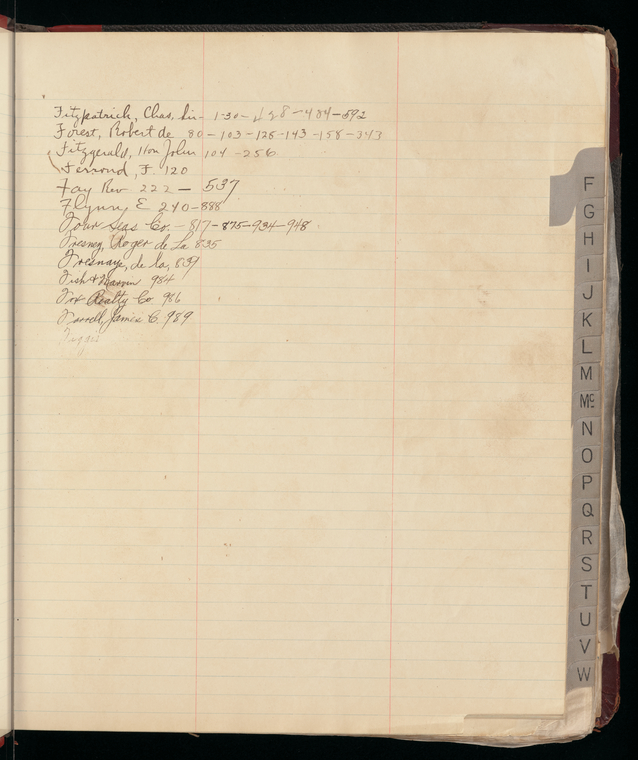 Fitzpatrick, Chas. Sir - 1-30- 428-484-592
Forest, Robert de 80-103-125-143-158-343
Fitzgerald, Hon John 104-256
Ferrond, F. 120
Fay Rev 222 - 537
Flynn, E 240-888
Four Seas Co. - 817-875-934-948
Fresney, Roger de La 835
Fresnaye, de la, 837
Fish & Marvin 984
Fox Realty Co 986
Farrell, James C. 989
F
G
H
I
J
K
L
M
Mc
N
O
P
Q
R
S
T
U
V
W